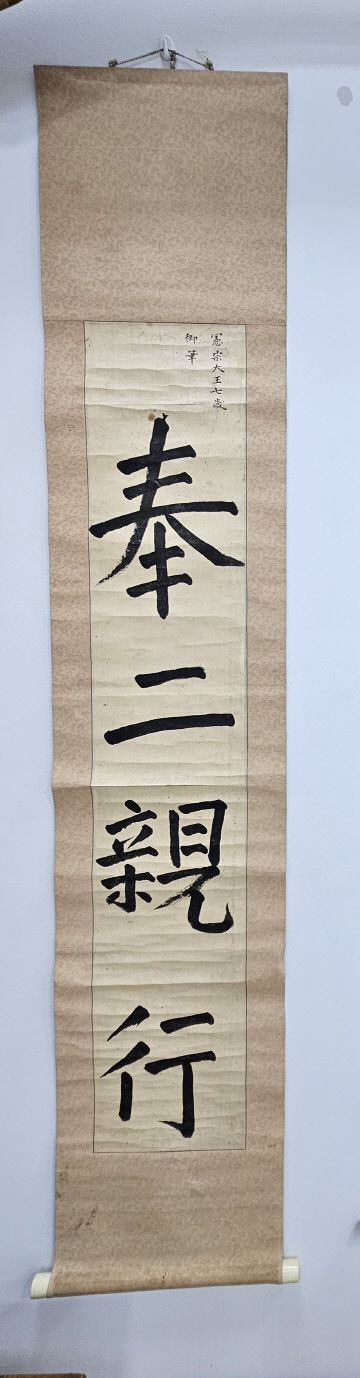 憲宗大王七歲
御筆
奉二親行